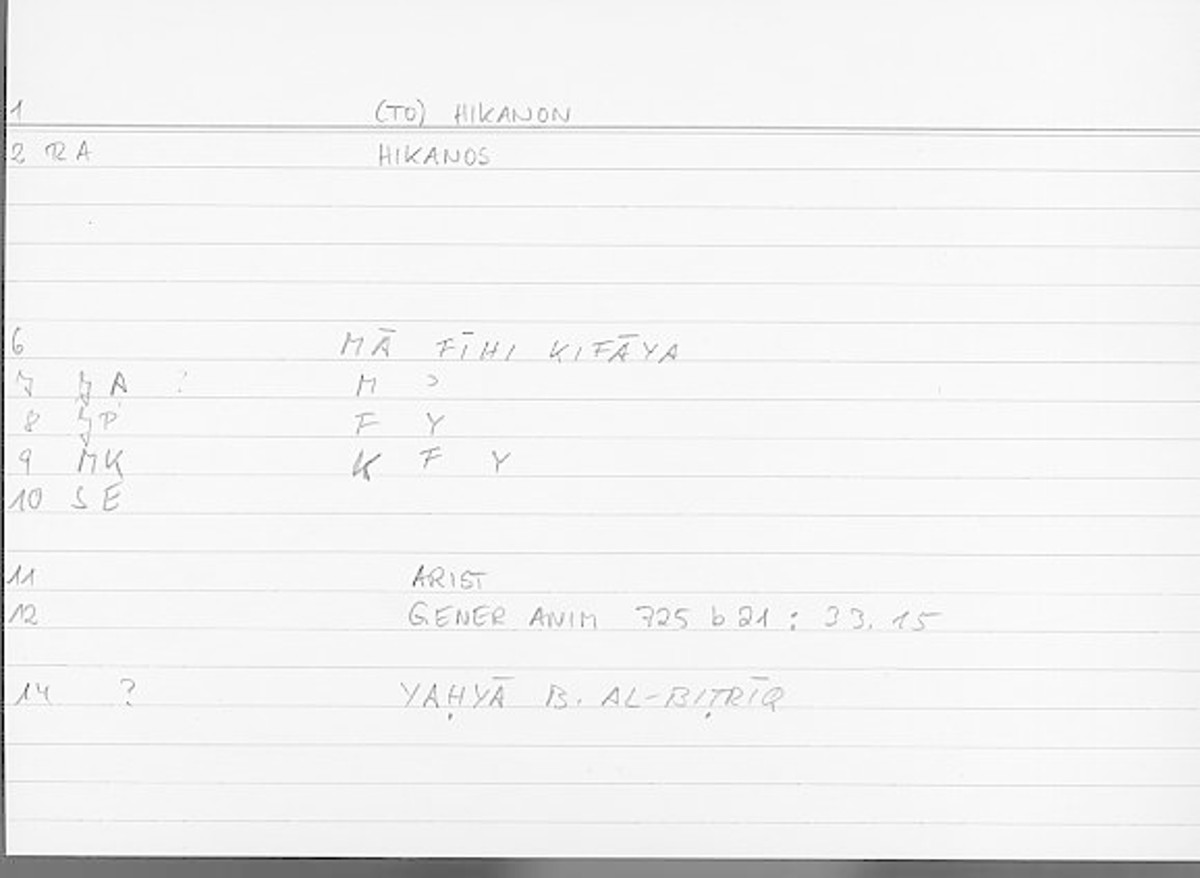 1 (TO) HIKANON
2 RA HIKANOS
6 MĀ FĪHI KIFĀYA
7 JA : M ɔ
8 JP F Y
9 MK K F Y
10 SE
11 ARIST
12 GENER ANIM 725 b 21 : 33.15
14 ? YAḤYĀ B. AL-BIṬRĪQ